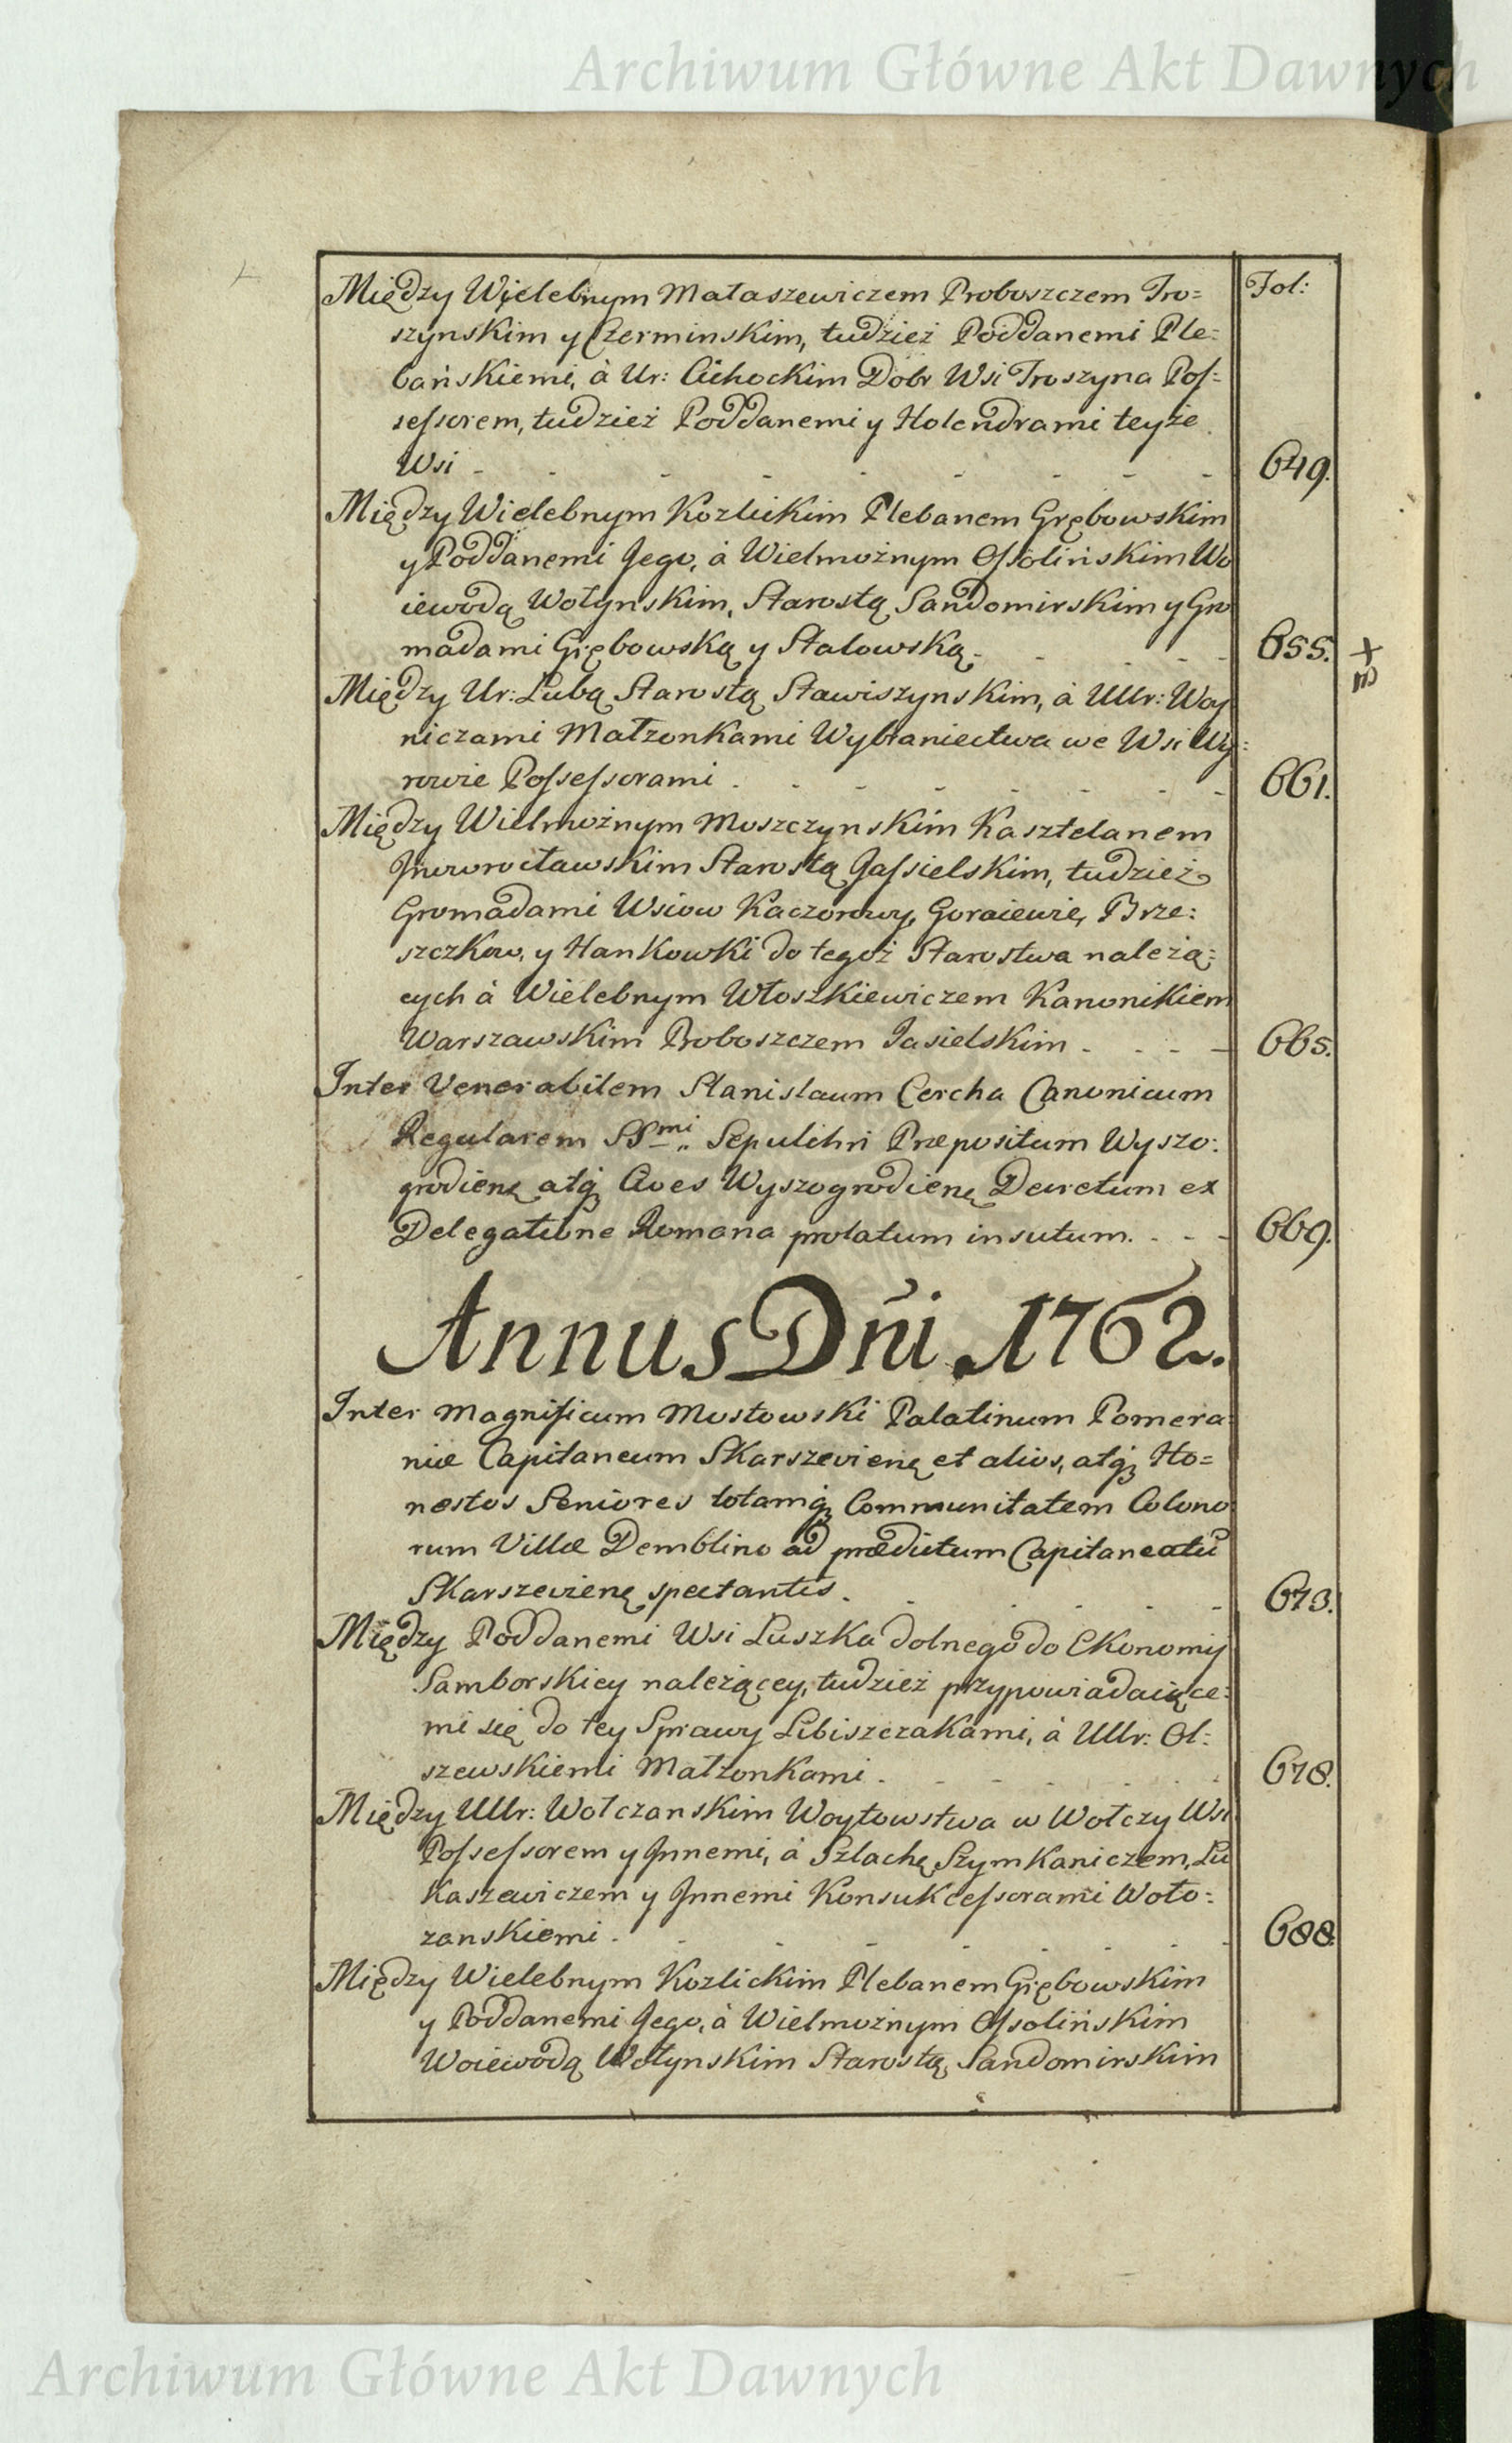 Archiwum Główne Akt Dawnych
Między Wielebnym Mataszewiczem Proboszczem Tro= Fol:
szynskim y Czerminskim, tudzież Poddanemi Ple=
bańskiemi, à Ur: Cichockim Dobr Wsi Troszyna Pos=
sessorem, tudzież Poddanemi y Holendrami teyże
Wsi - - - - - - - - 649.
Między Wielebnym Kozlickim Plebanem Grębowskim
y Poddanemi Jego, à Wielmożnym Ossolińskim Wo
iewodą Wołynskim, Starostą Sandomirskim y Gro
madami Grębowską y Stalowską. - - - - 655. +
Między Ur: Lubą Starostą Stawiszynskim, à UUr: Woy
niczami Małżonkami Wybraniectwa we Wsi Wy=
rowie Possessorami . - - - - - - - 661.
Między Wielmożnym Moszczynskim Kasztelanem
Inowrocławskim Starostą Jassielskim, tudzież
Gromadami Wsiow Kaczorowy, Goraiewie, Brze=
szczkow, y Hankowki do tegoż Starostwa należą=
cych à Wielebnym Włoszkiewiczem Kanonikiem
Warszawskim Proboszczem Jasielskim - - - - 665.
Inter Venerabilem Stanislaum Cercha Canonicum
Regularem SSmi Sepulchri Præpositum Wyszo=
grodienę atqꝫ Cives Wyszogrodienę Decretum ex
Delegatione Romana prolatum insutum. - - - 669.
Annus Dn̄i 1762.
Inter Magnificum Mostowski Palatinum Pomera=
niæ Capitaneum Skarszevienę et alios, atqꝫ Ho=
nestos Seniores totamqꝫ Communitatem Colono
rum Villæ Demblino ad prædictum Capitaneatū
Skarszevienę spectantis. - - - - - 673.
Między Poddanemi Wsi Łuszka dolnego do Ekonomiy
Samborskiey należącey, tudzież przypowiadaiące=
mi się do tey Sprawy Libiszczakami, à UUr: Ol=
szewskiemi Małżonkami. - - - - - - 678.
Między UUr: Wołczanskim Woytowstwa w Wołczy Wsi
Possessorem y Innemi, à Szlachę Szymkaniczem, Lu
kaszewiczem y Innemi Konsukcessorami Woło=
zanskiemi . - - - - - - - - 688.
Między Wielebnym Kozlickim Plebanem Grębowskim
y Poddanemi Jego, à Wielmożnym Ossolińskim
Woiewodą Wołynskim Starostą Sandomirskim
Archiwum Główne Akt Dawnych